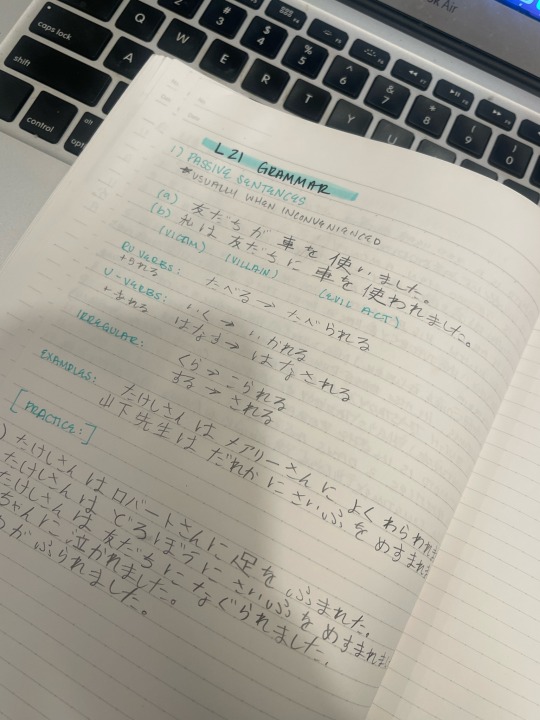 Book Air
caps lock Q W E R T Y U
# 3 $ 4 % 5 ^ 6 & 7 * 8 ( 9 ) 0
shift A
control
L21 GRAMMAR
1) PASSIVE SENTENCES
*USUALLY WHEN INCONVENIENCED
(a) 友だちが車を使いました。
(b) 私は友だちに車を使われました。
(VICTIM) (VILLAIN) (EVIL ACT)
RU VERBS: たべる→たべられる
+られる
U-VERBS: いく→いかれる
はなす→はなされる
IRREGULAR: くる→こられる
する→される
EXAMPLES: たけしさんはメアリーさんによくわらわれま
山下先生はだれかにさいふをぬすまれ
[PRACTICE:]
) たけしさんはロバートさんに足をふまれた。
たけしさんはどろぼうにさいふをぬすまれま
たけしさんは友だちになぐられました。
ちゃんに泣かれました。
がふられました。